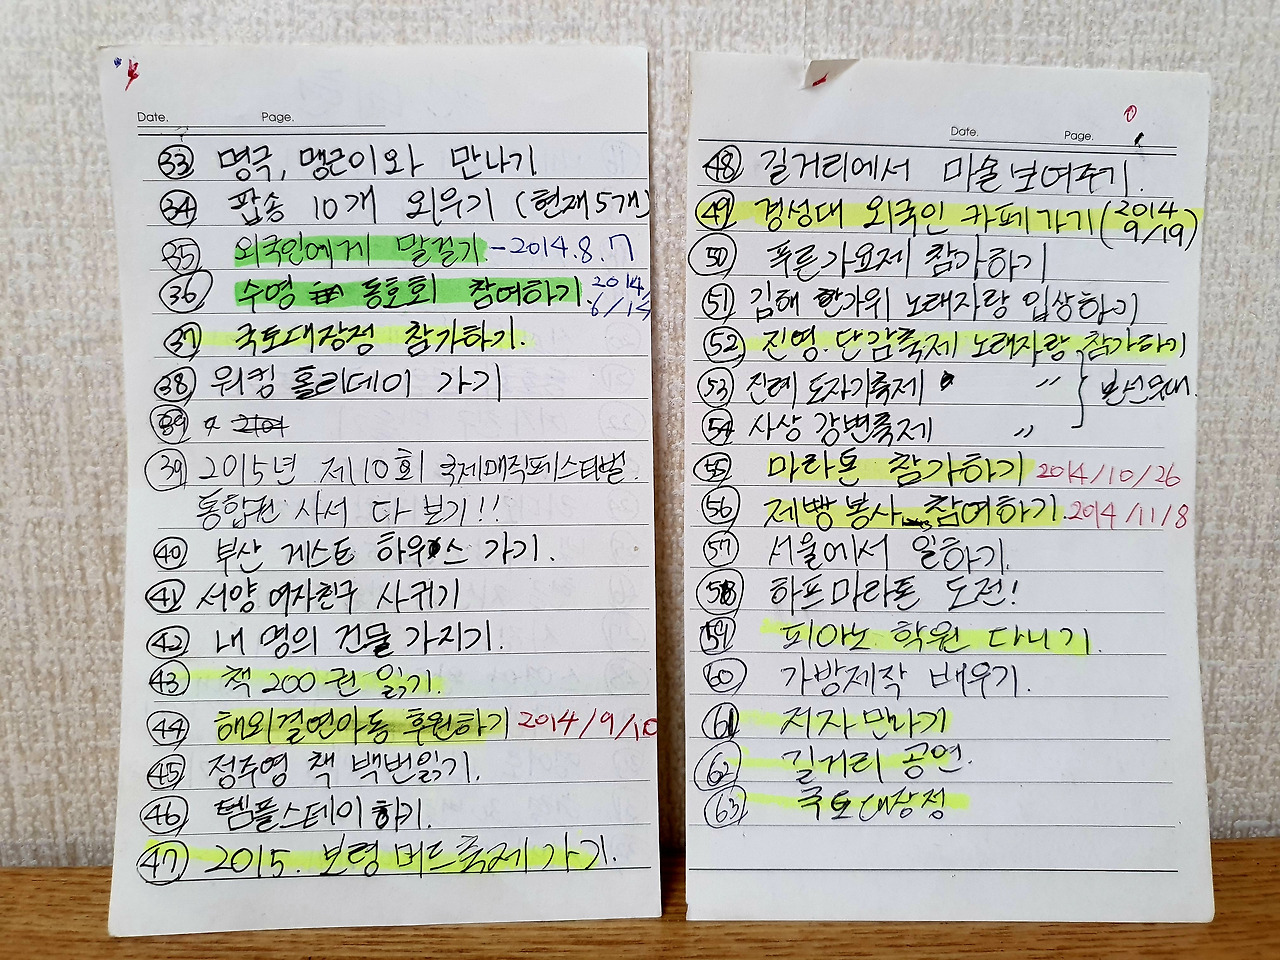 Date. Page.
33 명국, 맹근이와 만나기
34 팝송 10개 외우기 (현재5개)
35 외국인에게 말걸기 - 2014.8.7
36 수영 동호회 참여하기 2014.
6/14
37 국토대장정 참가하기.
38 워킹 홀리데이 가기
39
39 2015년 제10회 국제매직페스티벌.
통합권 사서 다 보기!!
40 부산 게스트 하우스 가기.
41 서양 여자친구 사귀기
42 내 명의 건물 가지기.
43 책 200권 읽기.
44 해외결연아동 후원하기 2014/9/10
45 정주영 책 백번읽기.
46 템플스테이 하기.
47 2015. 보령 머드축제 가기.
Date. Page.
48 길거리에서 마술보여주기.
49 경성대 외국인 카페가기 (2014
9/19)
50 푸른가요제 참가하기
51 김해 한가위 노래자랑 입상하기
52 진영.단감축제 노래자랑 참가하기
53 진례 도자기축제 〃 만선무대.
54 사상 강변축제 〃
55 마라톤 참가하기 2014/10/26
56 제빵봉사 참여하기. 2014/11/8
57 서울에서 일하기.
58 하프마라톤 도전!
59 피아노 학원 다니기.
60 가방제작 배우기.
61 저자만나기
62 길거리 공연.
63 국토대장정